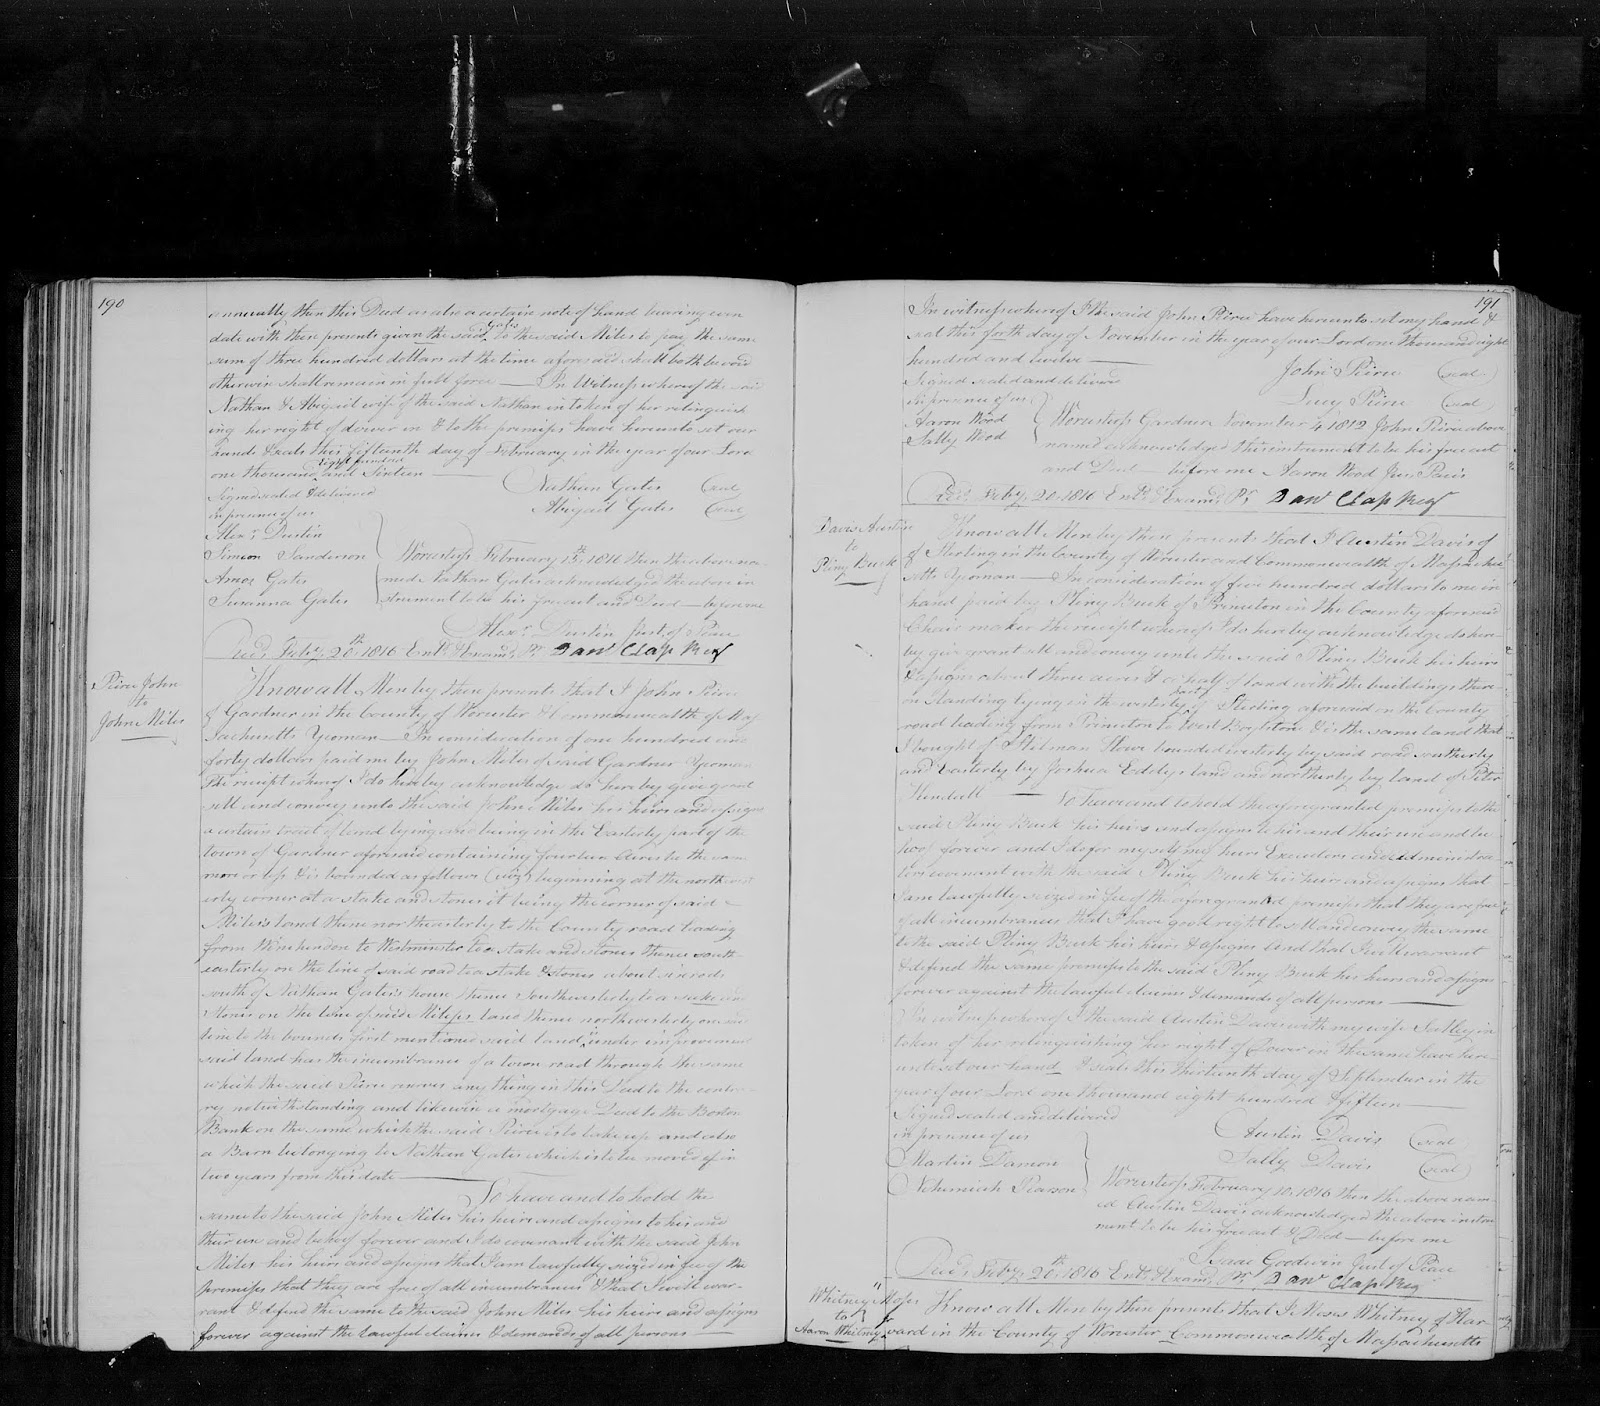 190
annually then this Deed as also a certain note of hand bearing even
date with these presents given the said Gates to the said Miles to pay the same
sum of three hundred dollars at the time aforesaid shall both be void
otherwise shall remain in full force — In Witness whereof the said
Nathan & Abigail wife of the said Nathan in token of her relinquish
ing her right of dower in & to the premises have hereunto set our
hands & seals this fifteenth day of February in the year of our Lord
one thousand eight hundred and Sixteen —
Signed sealed & delivered
in presence of us
Nathan Gates (seal)
Abigail Gates (seal)
Alexr Dustin
Simeon Sanderson
Amos Gates
Susanna Gates
Worcester ss February 15th 1816 then the above na-
med Nathan Gates acknowledged the above in
strument to be his free act and Deed — before me
Alexr Dustin Just. of Peace
Recd Feby 20th 1816 Entd & Examd Pr Danl Clap Reg
Peirce John
to
John Miles
Know all Men by these presents that I John Peirce
of Gardner in the County of Worcester & Commonwealth of Mas
sachusetts Yeoman — In consideration of one hundred and
forty dollars paid me by John Miles of said Gardner Yeoman
the receipt whereof I do hereby acknowledge do hereby give grant
sell and convey unto the said John Miles his heirs and assigns
a certain tract of land lying and being in the Easterly part of the
town of Gardner aforesaid containing fourteen Acres be the same
more or less & is bounded as follows (viz) beginning at the northwest
erly corner at a stake and stones it being the corner of said
Miles's land thence northeasterly to the County road leading
from Winchendon to Westminster to a stake and stones thence south-
easterly on the line of said road to a stake & stones about six rods
south of Nathan Gates's house thence Southwesterly to a stake and
stones on the line of said Miles's land thence northwesterly on said
line to the bounds first mentioned said land is under improvement
said land has the incumbrance of a town road through the same
which the said Peirce reserves any thing in this Deed to the contra-
ry notwithstanding and likewise a mortgage Deed to the Boston
Bank on the same which the said Peirce is to take up and also
a Barn belonging to Nathan Gates which is to be moved off in
two years from this date —
To have and to hold the
same to the said John Miles his heirs and assigns to his and
their use and behoof forever and I do covenant with the said John
Miles his heirs and assigns that I am lawfully seized in fee of the
premises that they are free of all incumbrances & that I will war-
rant & defend the same to the said John Miles his heirs and assigns
forever against the lawful claims & demands of all persons —
191
In witness whereof I the said John Peirce have hereunto set my hand &
seal this forth day of November in the year of our Lord one thousand eight
hundred and twelve —
Signed sealed and delivered
in presence of us
John Peirce (seal)
Lucy Peirce (seal)
Aaron Wood
Sally Wood
Worcester ss Gardner November 4 1812 John Peirce above
named acknowledged this instrument to be his free act
and Deed — before me Aaron Wood Jus. Pacis
Recd Feby 20. 1816 Entd & Examd Pr Danl Clap Reg
Davis Austin
to
Pliny Buck
Know all Men by these presents that I Austin Davis of
of Sterling in the County of Worcester and Commonwealth of Massachu
setts Yeoman — In consideration of five hundred dollars to me in
hand paid by Pliny Buck of Princeton in the County aforesaid
Chair maker the receipt whereof I do hereby acknowledge do here-
by give grant sell and convey unto the said Pliny Buck his heirs
& assigns about three acres & a half of land with the buildings there-
on standing lying in the westerly part of Sterling aforesaid on the County
road leading from Princeton to West Boylston & is the same land that
I bought of Stilman Howe bounded westerly by said road southerly
and Easterly by Joshua Eddy's land and northerly by land of Peter
Kendall — To have and to hold the aforegranted premises to the
said Pliny Buck his heirs and assigns to his and their use and be
hoof forever and I do for myself my heirs Executors and administra-
tors covenant with the said Pliny Buck his heirs and assigns that
I am lawfully seized in fee of the aforegranted premises that they are free
of all incumbrances that I have good right to sell and convey the same
to the said Pliny Buck his heirs & assigns and that I will warrant
& defend the same premises to the said Pliny Buck his heirs and assigns
forever against the lawful claims & demands of all persons —
In witness whereof I the said Austin Davis with my wife Salley in
token of her relinquishing her right of Dower in the same have here-
unto set our hand & seals this thirteenth day of September in the
year of our Lord one thousand eight hundred & fifteen —
Signed sealed and delivered
in presence of us
Austin Davis (seal)
Sally Davis (seal)
Martin Damon
Nehemiah Pearson
Worcester ss February 10. 1816 then the above nam-
ed Austin Davis acknowledged the above instru
ment to be his free act & Deed — before me
Isaac Goodwin Just of Peace
Recd Feby 20th 1816 Entd & Examd Pr Danl Clap Reg
Whitney Moses
to
Aaron Whitney
Know all Men by these presents that I Moses Whitney of Har-
vard in the County of Worcester Commonwealth of Massachusetts